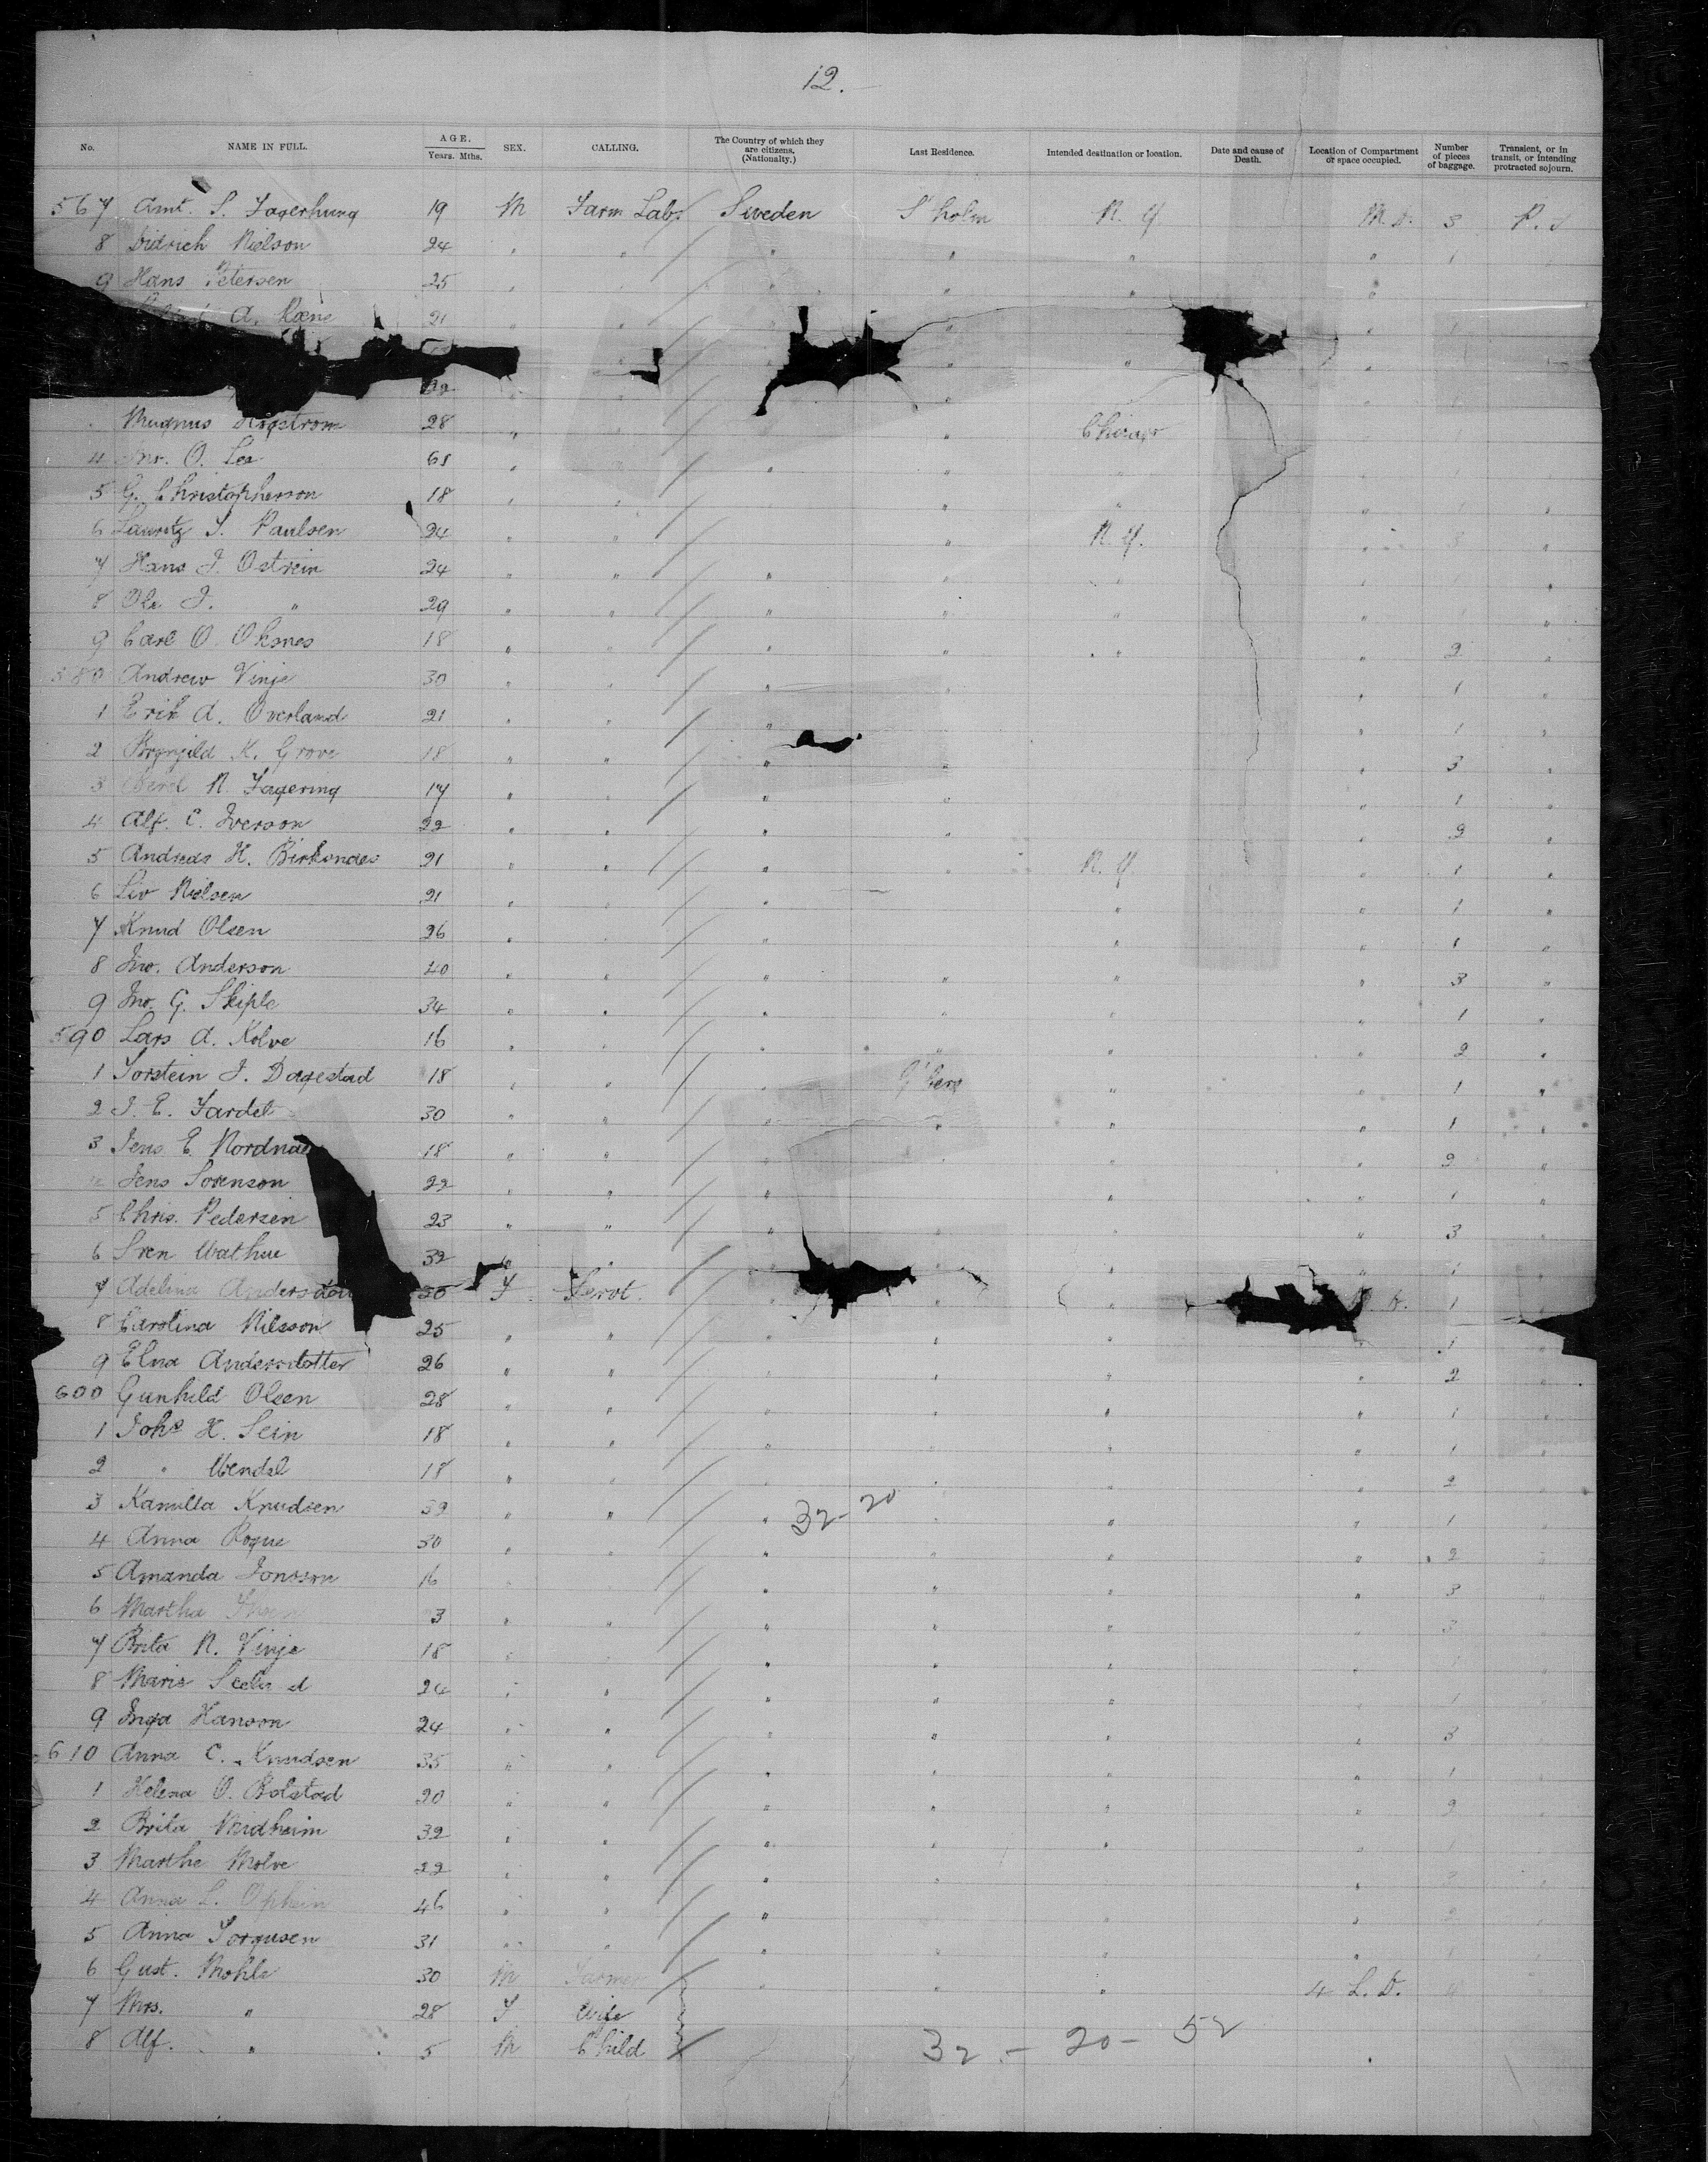 12.
No. NAME IN FULL. AGE. Years. Mths. SEX. CALLING. The Country of which they are citizens. (Nationality.) Last Residence. Intended destination or location. Date and cause of Death. Location of Compartment or space occupied. Number of pieces of baggage. Transient, or in transit, or intending protracted sojourn.
567 Amt. S. Fagerhung 19 M Farm Labr Sweden S'holm N. Y. 3 P. S
8 Didrich Nielson 24 " " " " " " 1
9 Hans Petersen 25 " " " " "
A. 21 " " " " 1
" "
Magnus 28 " " " Chicago
4 Jno. O. Lee 61 " " "
5 G. Christopherson 18 " " " " 1 "
6 Lauritz S. Paulsen 24 " " " N. Y. " 3 "
7 Hans J. Ostrein 24 " " " " " "
8 Ole J. " 29 " " " " " " "
9 Carl O. Ohsnes 18 " " " " " " 2 "
580 Andrew Vinje 30 " " " " 1 "
1 Erik A. Overland 21 " " " " 1 "
2 Brynjild K. Grove 18 " " " " " 3 "
3 N. Fagering 17 " " " " 1 "
4 Alf. C. Iverson 22 " " " " " 2 "
5 Andreas H. Birksnaes 21 " " " " N. Y. " 1 "
6 Liv Nielsen 21 " " " " " 1 "
7 Knud Olsen 26 " " " " " 1 "
8 Jno. Anderson 40 " " " " " " 3 "
9 Jno. G. Skiple 34 " " " " " " 1 "
590 Lars A. Kolve 16 " " " " " " 2 "
1 Torstein J. Dagestad 18 " " " G'berg " " 1 "
2 J. E. Fardel 30 " " " " " " 1 "
3 Jens E. Nordnae 18 " " " " 2 "
4 Jens Sorenson 22 " " " " " 1 "
5 Chris. Pedersen 23 " " " " 3 "
6 Sven Wathne 32 " " " " 1 "
7 Adelina Andersdott 30 F Servt. " " 1 "
8 Carolina Nilsson 25 " " " " " " 1 "
9 Elna Andersdotter 26 " " " " " 2 "
600 Gunhild Olsen 28 " " " " " " 1 "
1 Johe H. Sein 18 " " " " " " 1 "
2 " Wendel 18 " " " " " 2 "
3 Kamilla Knudsen 39 " " " 32-20 " " " 1 "
4 Anna Rogne 30 " " " " " " 2 "
5 Amanda Jonsson 16 " " " " " 3 "
6 Martha 3 " " " " " " 3 "
7 Brita N. Vinje 18 " " " " 1 "
8 Marie 24 " " " " " " 1 "
9 Inga Hanson 24 " " " " " " 3 "
610 Anna C. Knudsen 35 " " " " " " 1 "
1 Helena O. Bolstad 20 " " " " " " 2 "
2 Brita Midheim 32 " " " " " 1 "
3 Martha Molve 22 " " " " " 2 "
4 Anna L. Opheim 46 " " " " " 2 "
5 Anna Torgusen 31 " " " " " " 1
6 Gust. Mohle 30 M Farmer " " " 4 L. D.
7 Mrs. " 28 F Wife
8 Alf. " 5 M Child 32 - 20 - 52